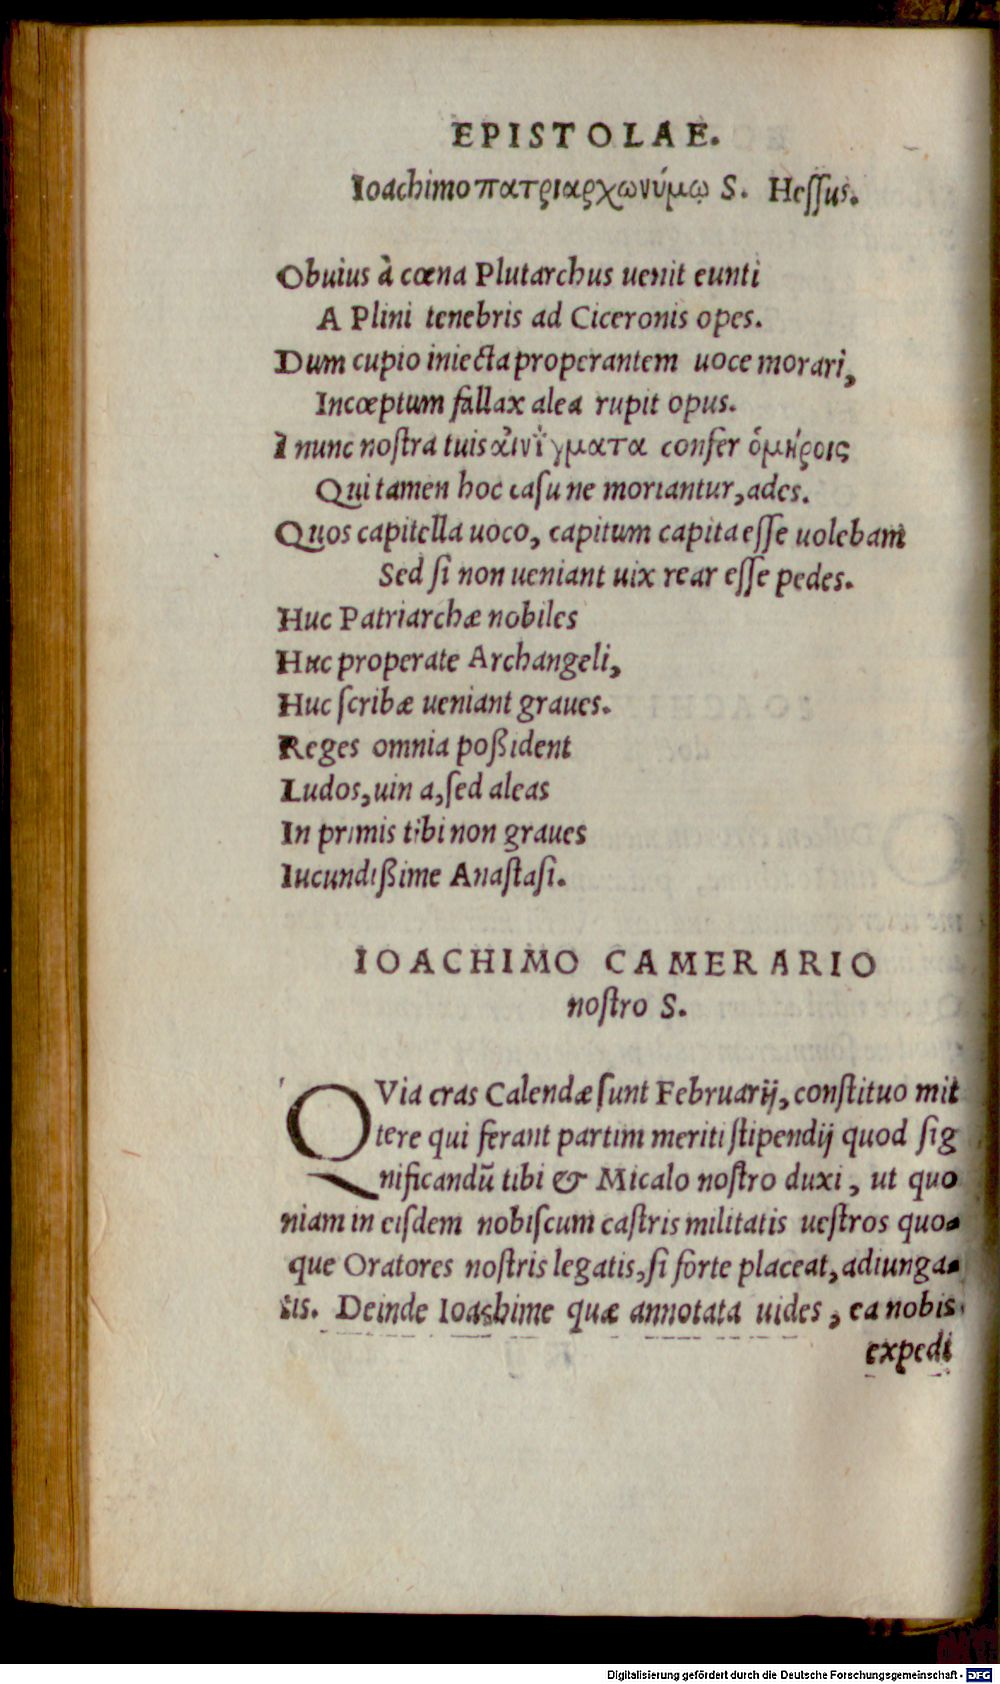 EPISTOLAE.
Ioachimo πατριαρχωνύμῳ S. Hessus.
Obuius à cœna Plutarchus uenit eunti
A Plini tenebris ad Ciceronis opes.
Dum cupio iniecta properantem uoce morari,
Incœptum fallax alea rupit opus.
I nunc nostra tuis αἰνίγματα confer ὁμήροις
Qui tamen hoc casu ne moriantur, ades.
Quos capitella uoco, capitum capita esse uolebam
Sed si non ueniant uix rear esse pedes.
Huc Patriarchæ nobiles
Huc properate Archangeli,
Huc scribæ ueniant graues.
Reges omnia poßident
Ludos, uina, sed aleas
In primis tibi non graues
Iucundißime Anastasi.
IOACHIMO CAMERARIO
nostro S.
QVia cras Calendæ sunt Februarij, constituo mit
tere qui ferant partim meriti stipendij quod sig
nificandũ tibi & Micalo nostro duxi, ut quo
niam in eisdem nobiscum castris militatis uestros quo-
que Oratores nostris legatis, si forte placeat, adiunga-
tis. Deinde Ioachime quæ annotata uides, ea nobis
expedi
Digitalisierung gefördert durch die Deutsche Forschungsgemeinschaft - DFG